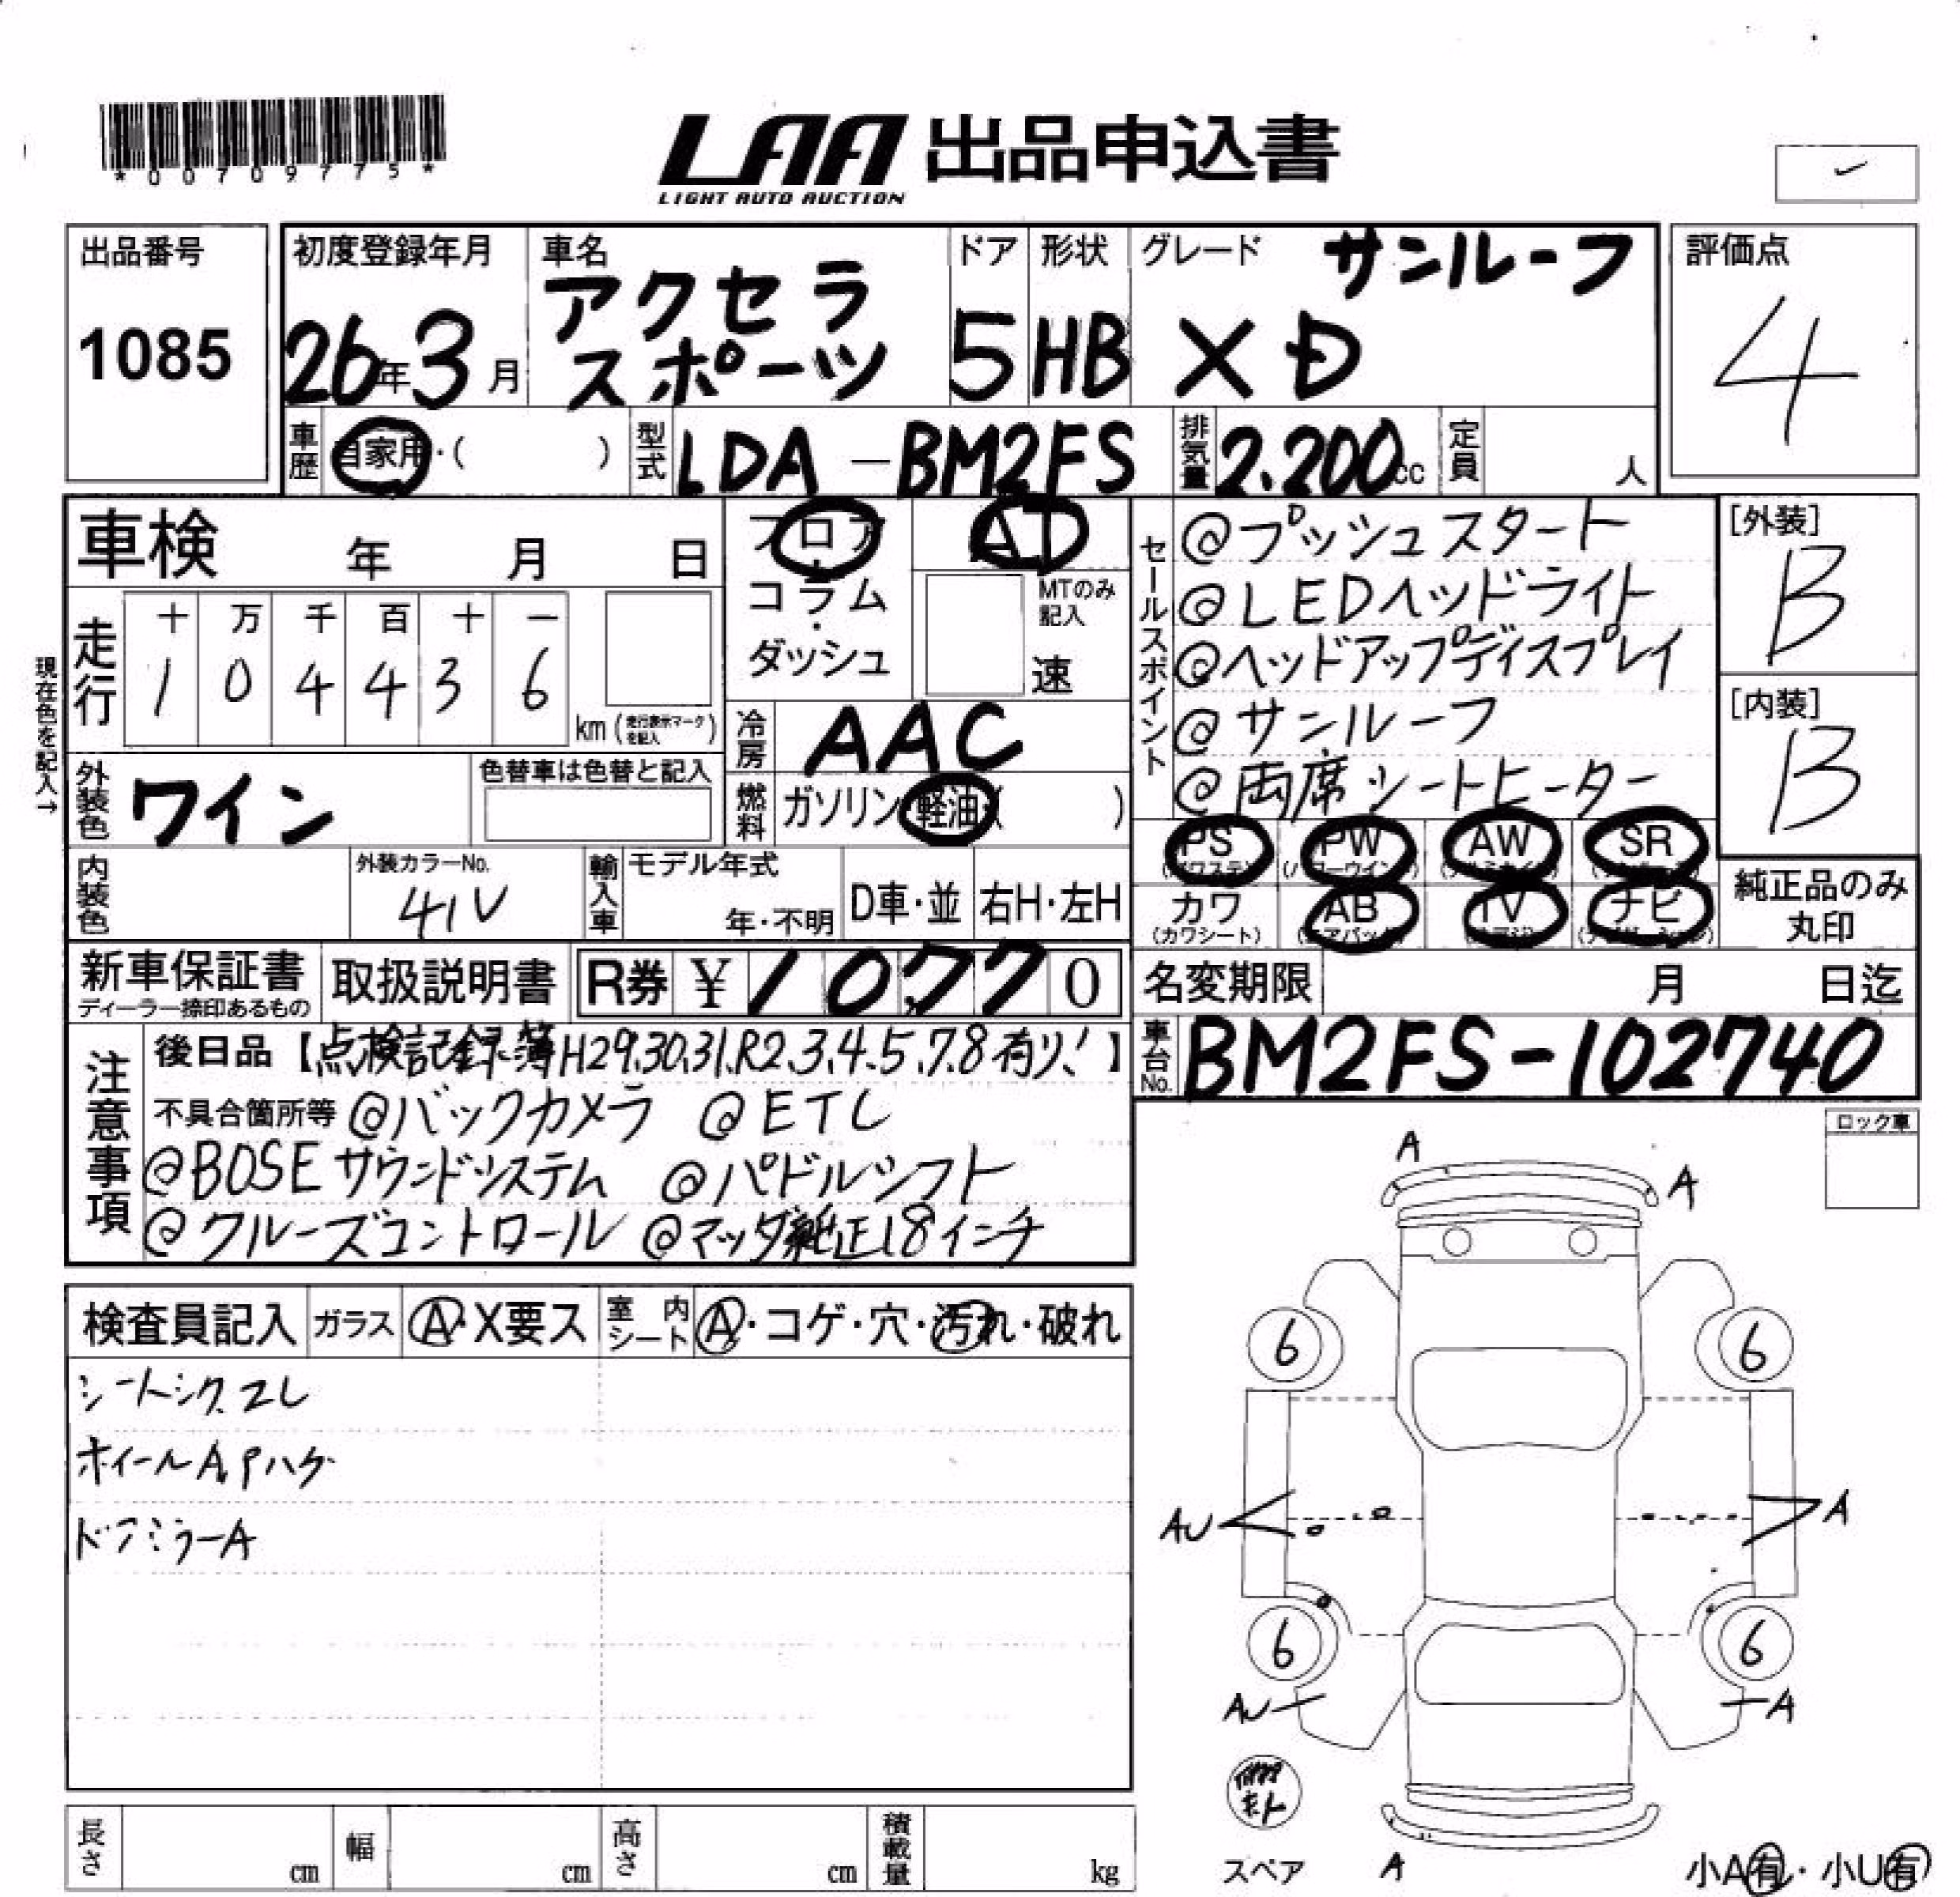 *00709775*
LAA 出品申込書
LIGHT AUTO AUCTION
出品番号
1085
初度登録年月
26年3月
車名
アクセラ
スポーツ
ドア
5
形状
HB
グレード
サンルーフ
XD
評価点
4
車歴 自家用・( )
型式 LDA-BM2FS
排気量 2.200cc
定員 人
車検 年 月 日
フロア
・
コラム
・
ダッシュ
AT
MTのみ記入
速
現在色を記入→
走行
十 万 千 百 十 一
1 0 4 4 3 6
km (走行表示マークを記入)
冷房 AAC
外装色 ワイン
色替車は色替と記入
燃料 ガソリン・軽油・( )
内装色
外装カラーNo.
41V
輸入車
モデル年式
年・不明
D車・並
右H・左H
セールスポイント
@プッシュスタート
@LEDヘッドライト
@ヘッドアップディスプレイ
@サンルーフ
@両席シートヒーター
[外装]
B
[内装]
B
PS PW AW SR
(パワステ) (パワーウインド)
カワ AB TV ナビ
(カワシート) (エアバック)
純正品のみ
丸印
新車保証書
ディーラー捺印あるもの
取扱説明書
R券 ¥10,770
名変期限 月 日迄
車台No. BM2FS-102740
注意事項
後日品【点検記録簿H29,30,31,R2,3,4,5,7,8有り!】
不具合箇所等 @バックカメラ @ETC
@BOSEサウンドシステム @パドルシフト
@クルーズコントロール @マツダ純正18インチ
ロック車
検査員記入 ガラス A・X要ス 室内シート A・コゲ・穴・汚れ・破れ
ホイールA,Pハゲ
ドアミラーA
A
A
6
6
AU
A
6
6
AU
A
スペア
A
小A有・小U有
長さ cm
幅 cm
高さ cm
積載量 kg